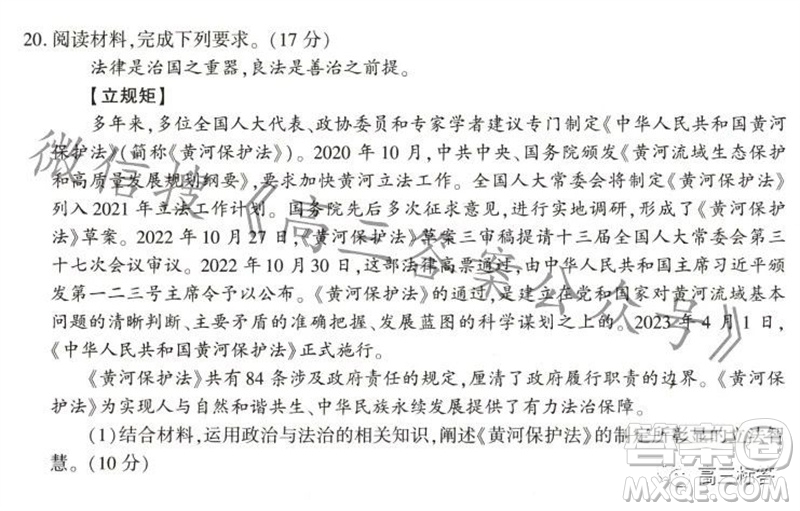 20. 阅读材料,完成下列要求。(17 分)
法律是治国之重器,良法是善治之前提。
【立规矩】
多年来,多位全国人大代表、政协委员和专家学者建议专门制定《中华人民共和国黄河
保护法》(简称《黄河保护法》)。2020 年 10 月,中共中央、国务院颁发《黄河流域生态保护
和高质量发展规划纲要》,要求加快黄河立法工作。全国人大常委会将制定《黄河保护法》
列入 2021 年立法工作计划。国务院先后多次征求意见,进行实地调研,形成了《黄河保护
法》草案。2022 年 10 月 27 日,《黄河保护法》草案三审稿提请十三届全国人大常委会第三
十七次会议审议。2022 年 10 月 30 日,这部法律高票通过,由中华人民共和国主席习近平颁
发第一二三号主席令予以公布。《黄河保护法》的通过,是建立在党和国家对黄河流域基本
问题的清晰判断、主要矛盾的准确把握、发展蓝图的科学谋划之上的。2023 年 4 月 1 日,
《中华人民共和国黄河保护法》正式施行。
《黄河保护法》共有 84 条涉及政府责任的规定,厘清了政府履行职责的边界。《黄河保
护法》为实现人与自然和谐共生、中华民族永续发展提供了有力法治保障。
(1)结合材料,运用政治与法治的相关知识,阐述《黄河保护法》的制定所彰显的立法智
慧。(10 分)
微信搜《高三答案公众号》
高三标答
答案圈
MXQE.COM